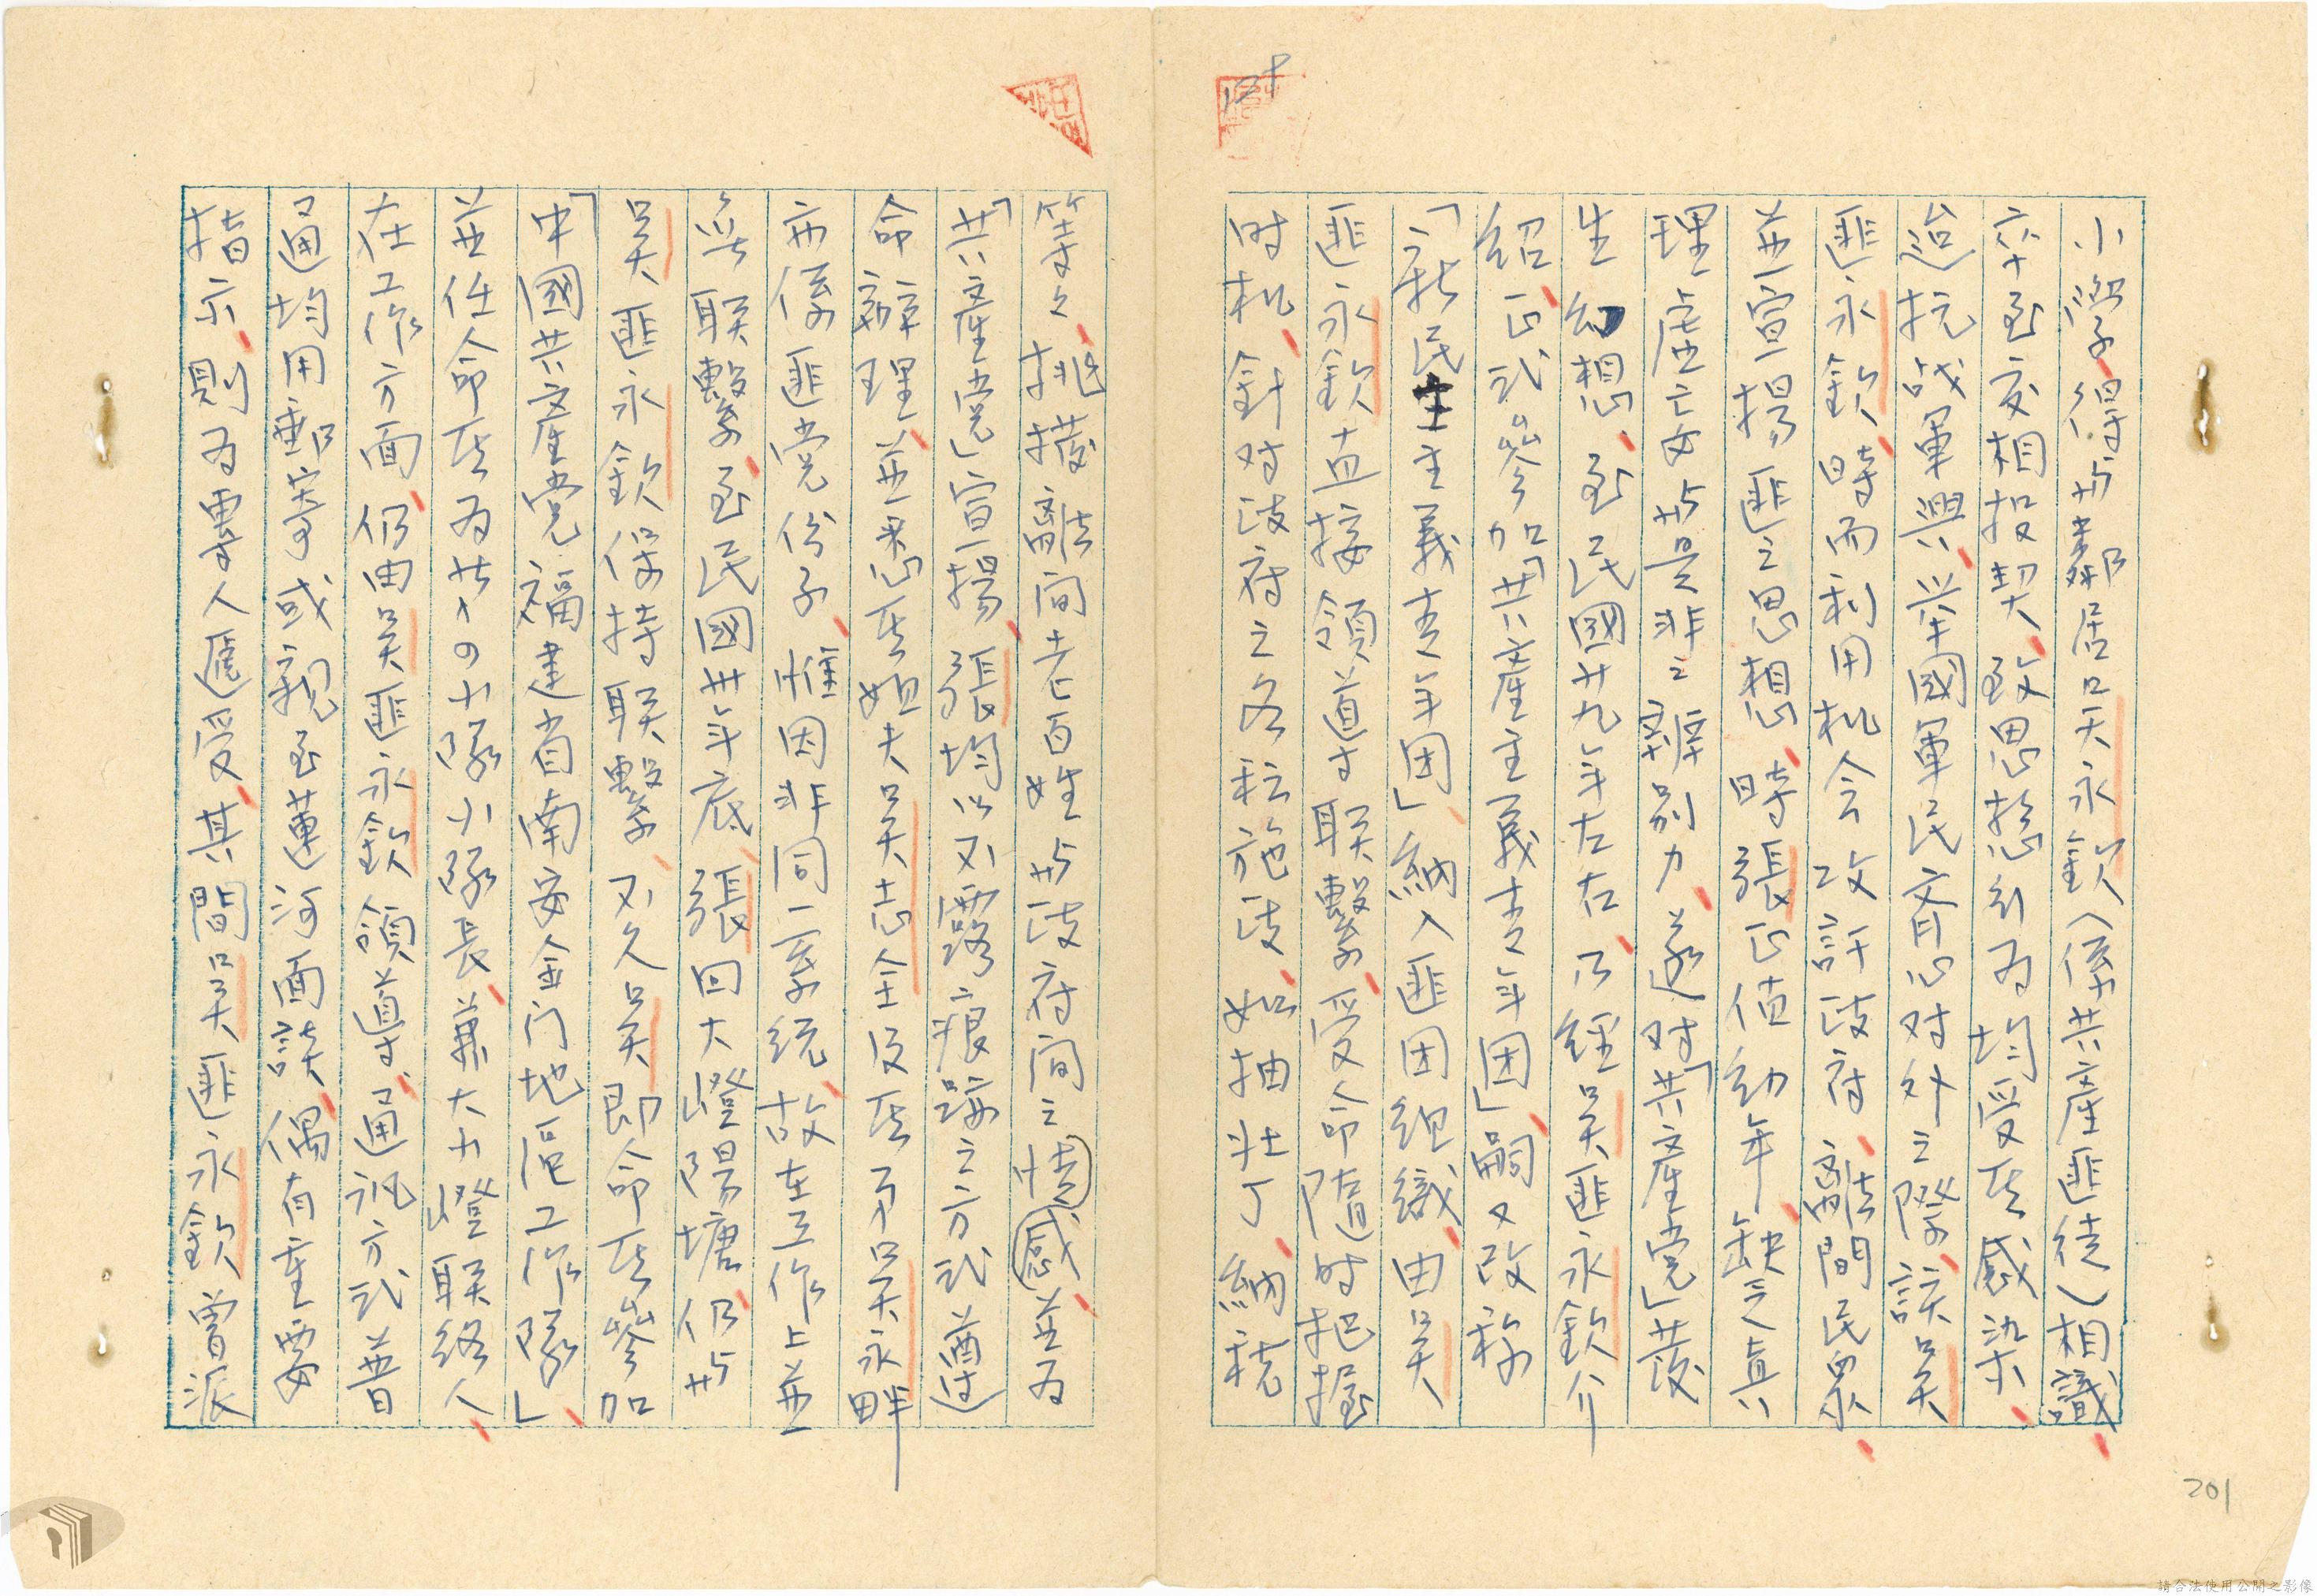 小學、得与鄰居吳永欽(係共產匪徒)相識、
亦至交相投契、致思想行为均受其感染、
迨抗战軍興、举國軍民齊心对外之際、該吳
匪永欽、時而利用机会攻訐政府、離間民眾、
並宣揚匪之思想、時張正值幼年、缺乏真
理主意与是非之辨别力、遂对「共產党」萋
生幻想、至民國廿九年左右、乃經吳匪永欽介
紹、正式參加「共產主義青年团」、嗣又改称
「新民主主義青年团」、納入匪团組織、由吳
匪永欽直接領導联繫、受命隨时把握
时机、針对政府之各種施政、如抽壮丁、納税
等々、挑撥離间老百姓与政府间之情感並为
「共產党」宣揚、張均以不露痕跡之方式遵
命辦理、並悉其姐夫吳志全及其子吳永畔
亦係匪党份子、惟因非同一系統、故在工作上並
無联繫、至民國卅年底、張回大嶝陽塘、仍与
吳匪永欽保持联繫、不久吳即命其參加
「中國共產党福建省南安金门地區工作隊」、
並任命其为共十四小隊小隊長、兼大小嶝联絡人、
在工作方面、仍由吳匪永欽領導、通訊方式普
通均用書信寄或親至蓮河面談、偶有重要
指示、則为單人匪受、其間吳匪永欽曾派
201
請合法使用公開之影像